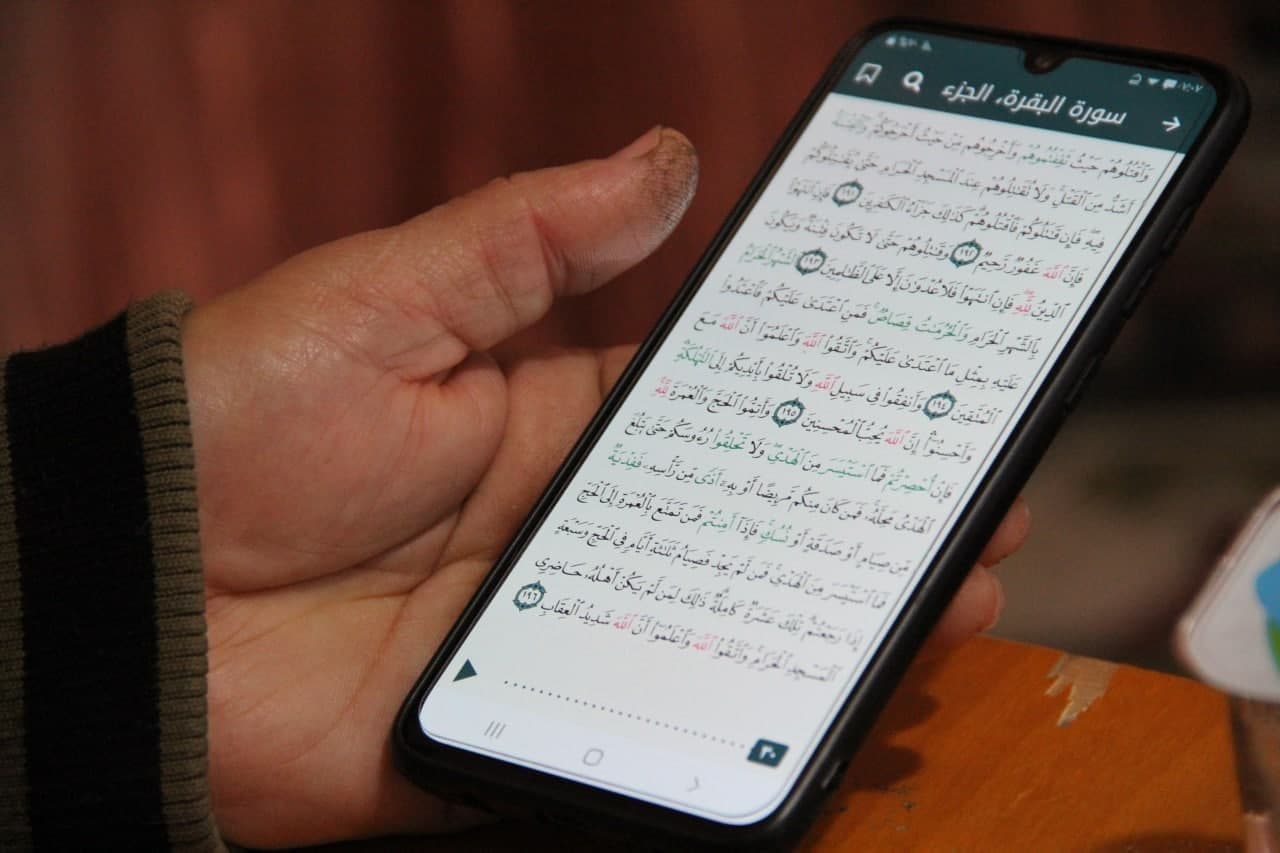 ٧:٠٧
سورة البقرة، الجزء
وَٱقْتُلُوهُمْ حَيْثُ ثَقِفْتُمُوهُمْ وَأَخْرِجُوهُم مِّنْ حَيْثُ أَخْرَجُوكُمْ وَٱلْفِتْنَةُ
أَشَدُّ مِنَ ٱلْقَتْلِ وَلَا تُقَٰتِلُوهُمْ عِندَ ٱلْمَسْجِدِ ٱلْحَرَامِ حَتَّىٰ يُقَٰتِلُوكُمْ
فِيهِ فَإِن قَٰتَلُوكُمْ فَٱقْتُلُوهُمْ كَذَٰلِكَ جَزَآءُ ٱلْكَٰفِرِينَ ١٩١ فَإِنِ ٱنتَهَوْا۟
فَإِنَّ ٱللَّهَ غَفُورٌ رَّحِيمٌ ١٩٢ وَقَٰتِلُوهُمْ حَتَّىٰ لَا تَكُونَ فِتْنَةٌ وَيَكُونَ
ٱلدِّينُ لِلَّهِ فَإِنِ ٱنتَهَوْا۟ فَلَا عُدْوَٰنَ إِلَّا عَلَى ٱلظَّٰلِمِينَ ١٩٣ ٱلشَّهْرُ ٱلْحَرَامُ
بِٱلشَّهْرِ ٱلْحَرَامِ وَٱلْحُرُمَٰتُ قِصَاصٌ ۚ فَمَنِ ٱعْتَدَىٰ عَلَيْكُمْ فَٱعْتَدُوا۟
عَلَيْهِ بِمِثْلِ مَا ٱعْتَدَىٰ عَلَيْكُمْ وَٱتَّقُوا۟ ٱللَّهَ وَٱعْلَمُوٓا۟ أَنَّ ٱللَّهَ مَعَ
ٱلْمُتَّقِينَ ١٩٤ وَأَنفِقُوا۟ فِى سَبِيلِ ٱللَّهِ وَلَا تُلْقُوا۟ بِأَيْدِيكُمْ إِلَى ٱلتَّهْلُكَةِ
وَأَحْسِنُوٓا۟ إِنَّ ٱللَّهَ يُحِبُّ ٱلْمُحْسِنِينَ ١٩٥ وَأَتِمُّوا۟ ٱلْحَجَّ وَٱلْعُمْرَةَ لِلَّهِ
فَإِنْ أُحْصِرْتُمْ فَمَا ٱسْتَيْسَرَ مِنَ ٱلْهَدْىِ وَلَا تَحْلِقُوا۟ رُءُوسَكُمْ حَتَّىٰ يَبْلُغَ
ٱلْهَدْىُ مَحِلَّهُۥ فَمَن كَانَ مِنكُم مَّرِيضًا أَوْ بِهِۦٓ أَذًى مِّن رَّأْسِهِۦ فَفِدْيَةٌ
مِّن صِيَامٍ أَوْ صَدَقَةٍ أَوْ نُسُكٍ فَإِذَآ أَمِنتُمْ فَمَن تَمَتَّعَ بِٱلْعُمْرَةِ إِلَى ٱلْحَجِّ
فَمَا ٱسْتَيْسَرَ مِنَ ٱلْهَدْىِ فَمَن لَّمْ يَجِدْ فَصِيَامُ ثَلَٰثَةِ أَيَّامٍ فِى ٱلْحَجِّ وَسَبْعَةٍ
إِذَا رَجَعْتُمْ تِلْكَ عَشَرَةٌ كَامِلَةٌ ذَٰلِكَ لِمَن لَّمْ يَكُنْ أَهْلُهُۥ حَاضِرِى
ٱلْمَسْجِدِ ٱلْحَرَامِ وَٱتَّقُوا۟ ٱللَّهَ وَٱعْلَمُوٓا۟ أَنَّ ٱللَّهَ شَدِيدُ ٱلْعِقَابِ ١٩٦
٣٠